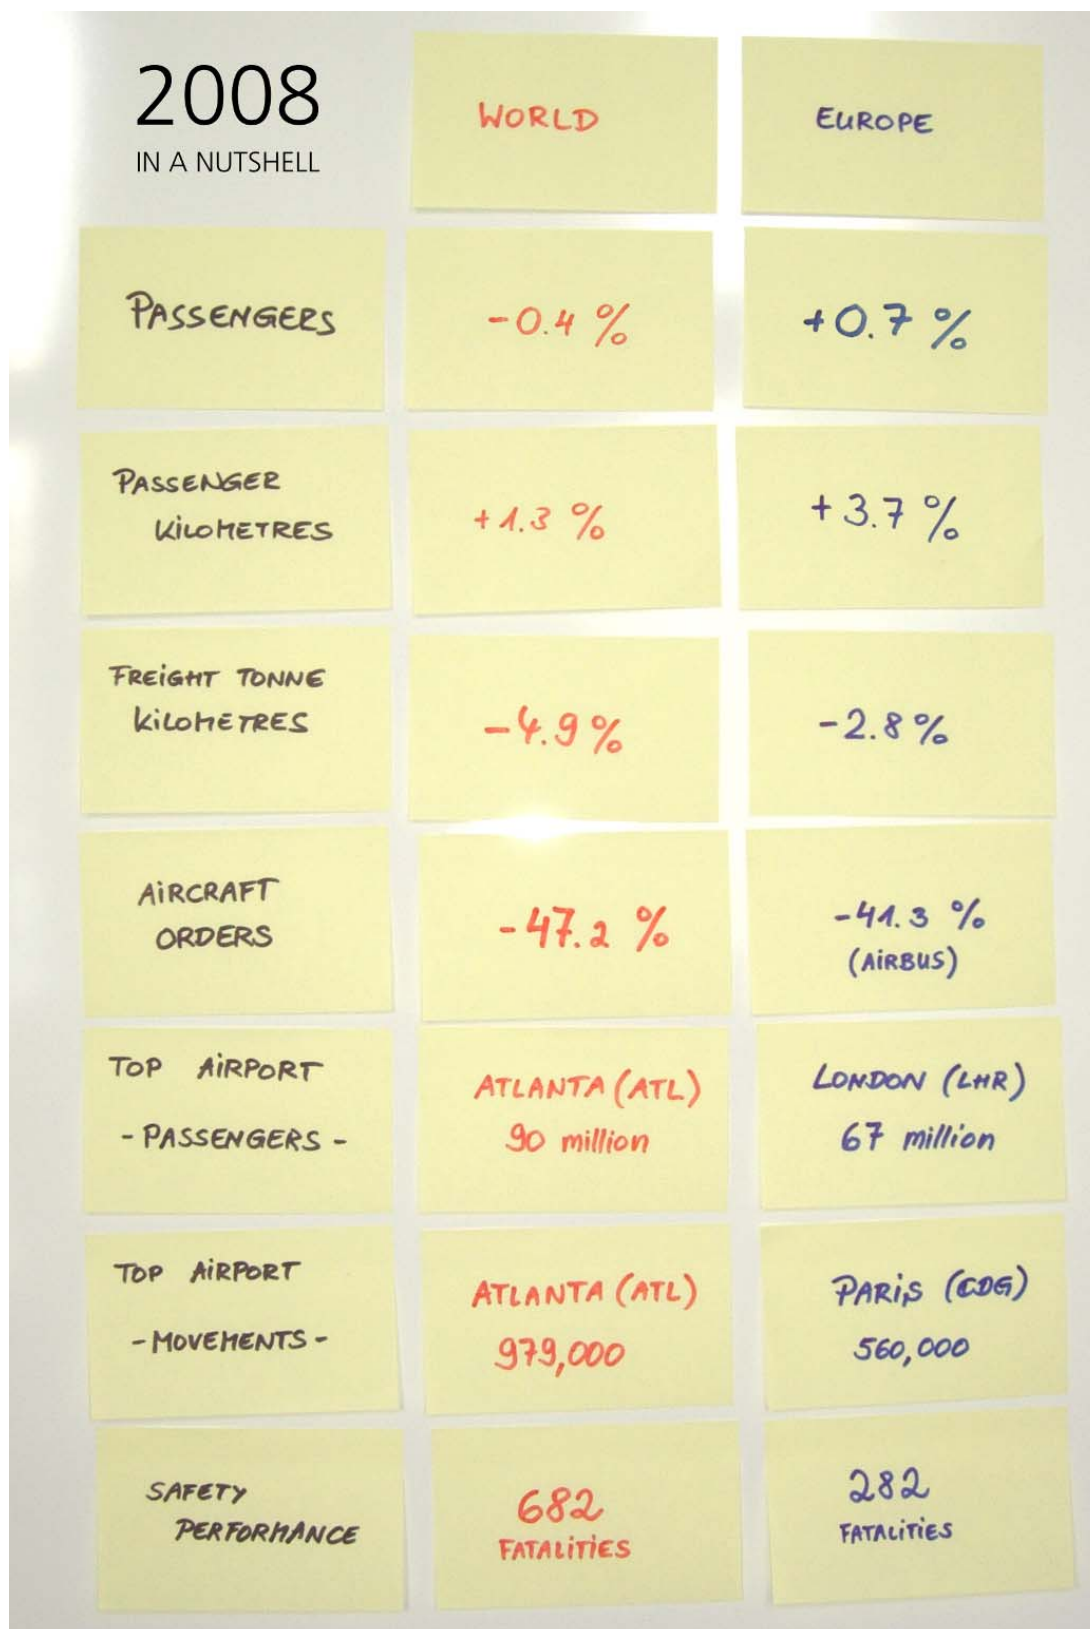 2008
IN A NUTSHELL
WORLD
EUROPE
PASSENGERS
-0.4 %
+0.7 %
PASSENGER
KILOMETRES
+1.3 %
+3.7 %
FREIGHT TONNE
KILOMETRES
-4.9%
-2.8%
AIRCRAFT
ORDERS
-47.2 %
-41.3 %
(AIRBUS)
TOP AIRPORT
- PASSENGERS -
ATLANTA (ATL)
90 million
LONDON (LHR)
67 million
TOP AIRPORT
- MOVEMENTS -
ATLANTA (ATL)
979,000
PARIS (CDG)
560,000
SAFETY
PERFORMANCE
682
FATALITIES
282
FATALITIES